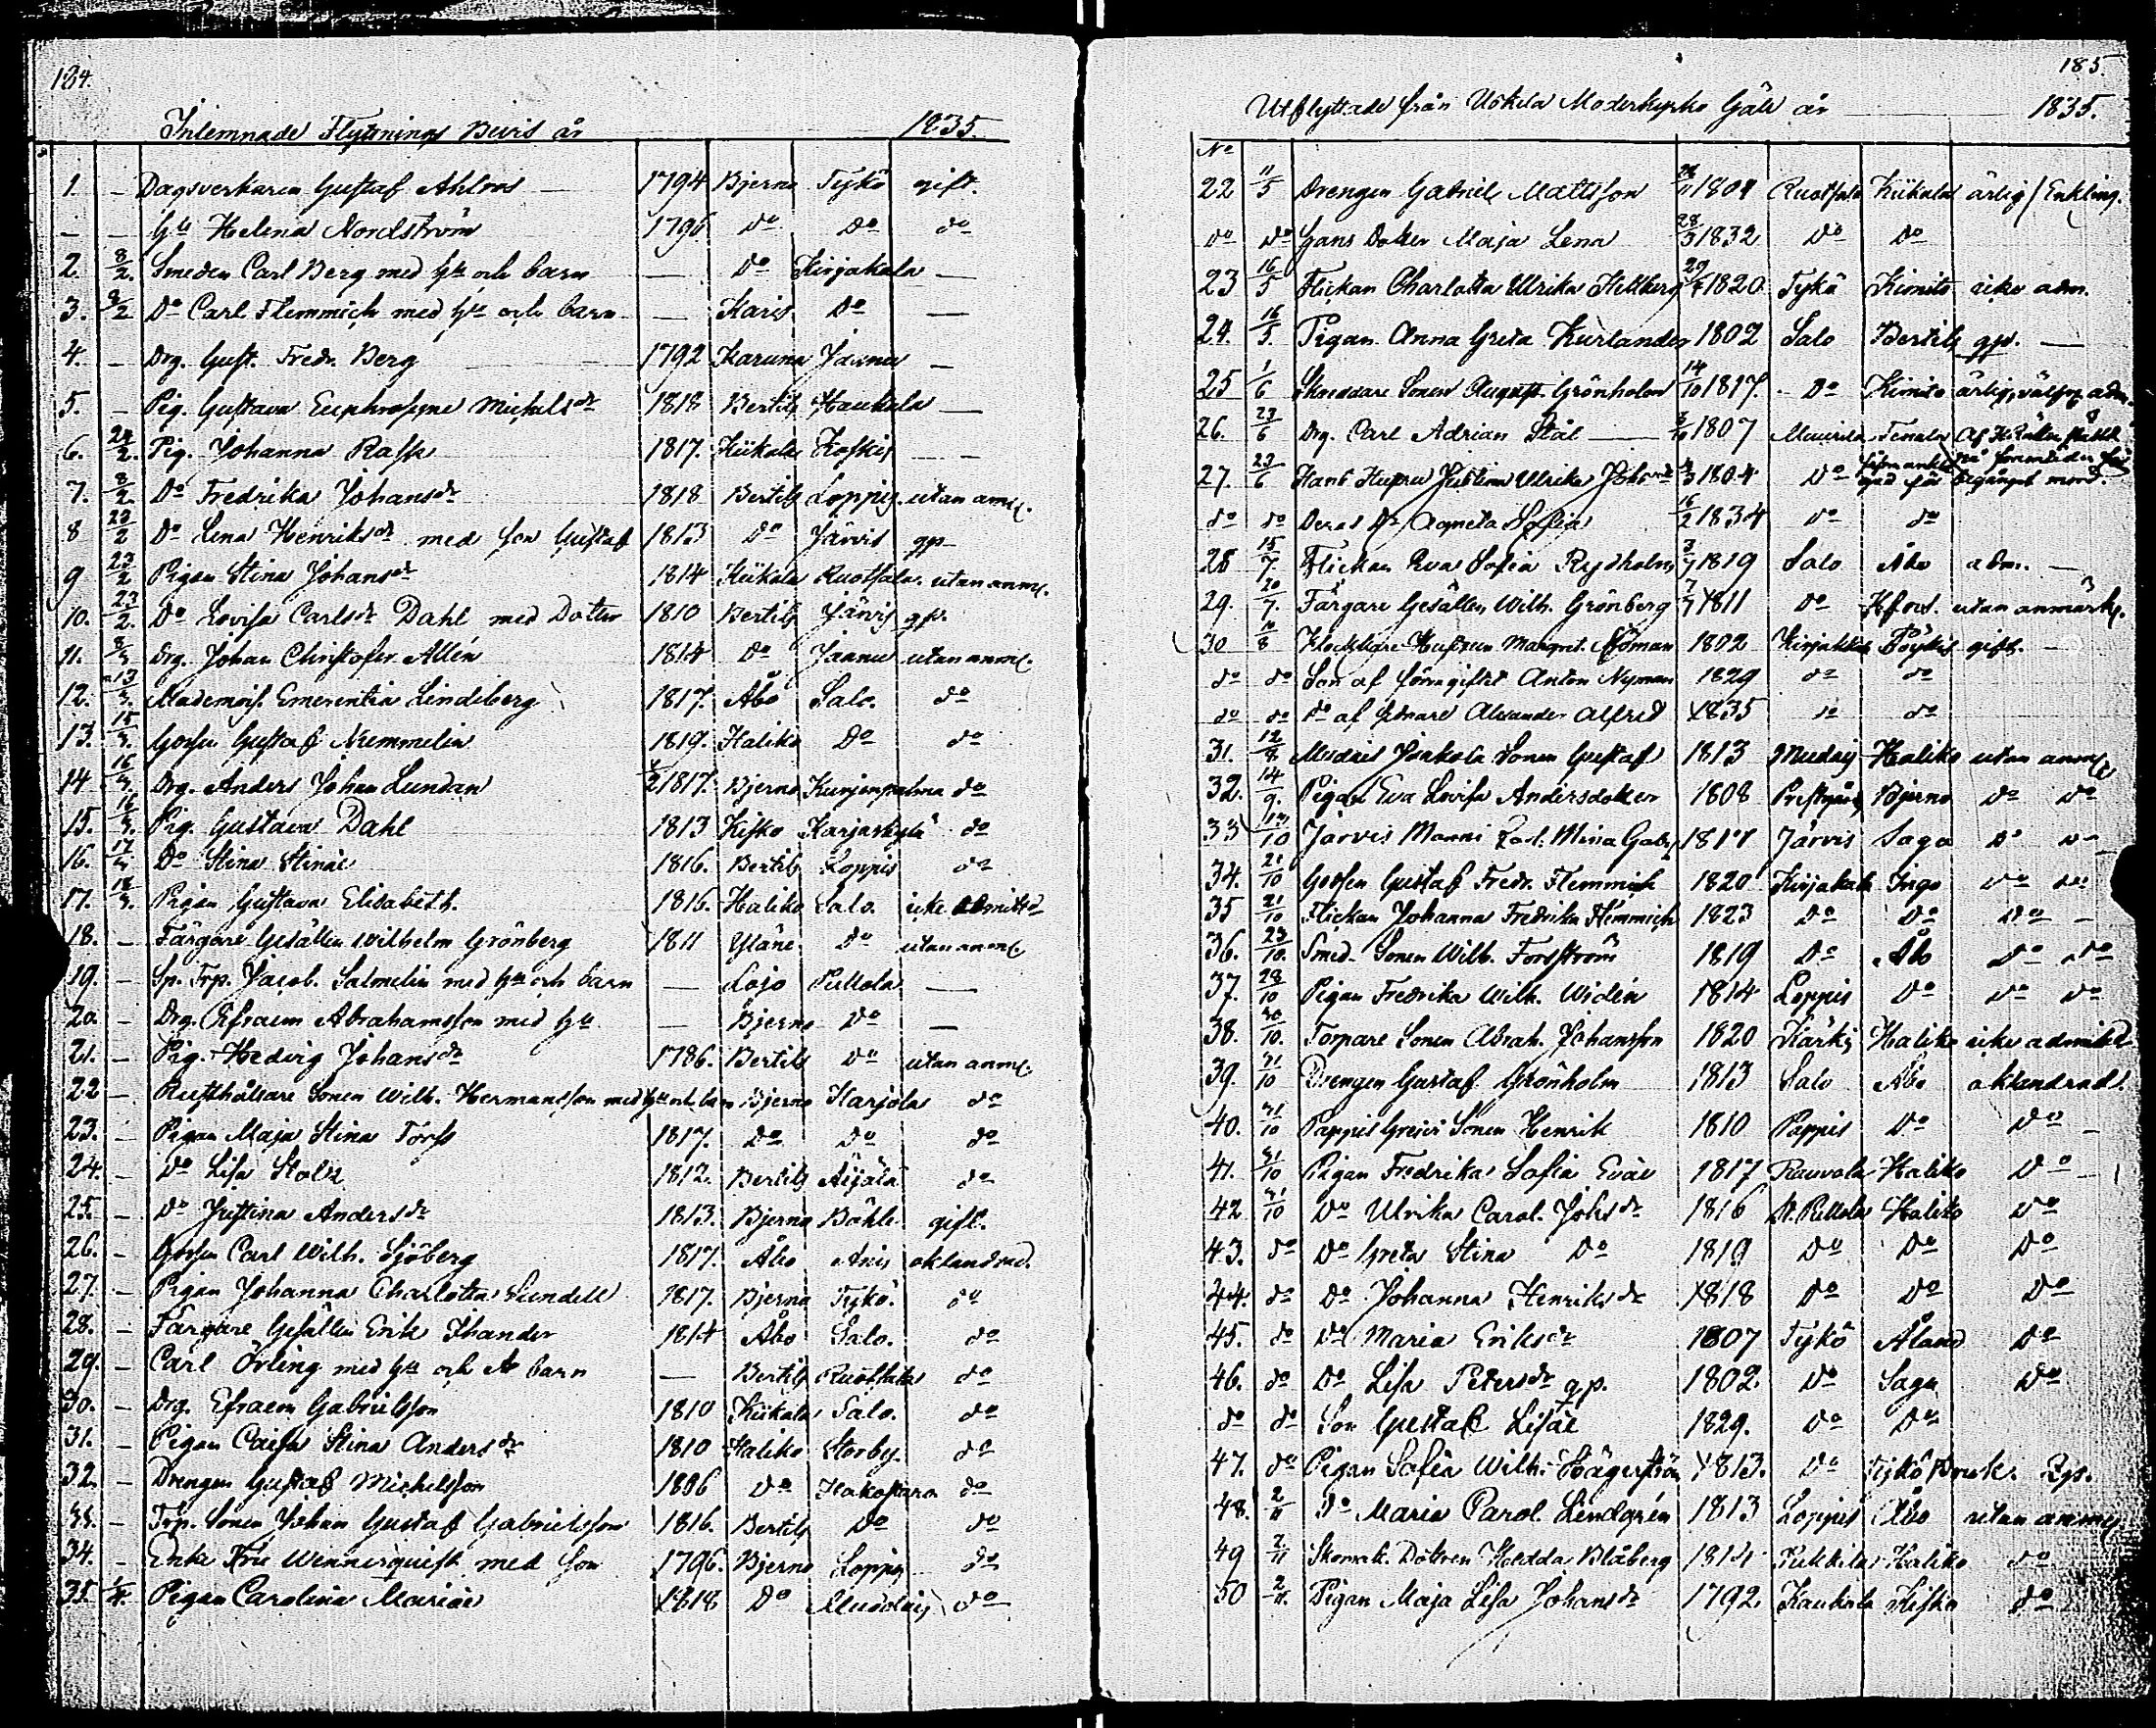 184.
Inlemnade Flyttnings Bevis år 1835.
1. – Dagsverkaren Gustaf Ahlroos – 1794 Bjerno Tykö gift.
– – Hu Helena Nordström 1796 do do do
2. 8/2. Smeden Carl Berg med hu och barn — do Kirjakala —
3. 8/2 Do Carl Flemmich med hu och barn — Karis Do —
4. – Drg. Gust. Fredr. Berg 1792 Karuna —
5. – Pig. Gustava Euphrosyne Michelsdr 1818 Bertils Haukala —
6. 24/2. Pig. Johanna Rask 1817. Kiikala Koskis –
7. 8/2. Do Fredrika Johansdr 1818 Bertils Loppis utan anm.
8 23/2 Do Lena Henriksdr med son Gustaf 1813 do Järvis gp
9 23/2 Pigan Stina Johansdr 1814 Kiikala Ruotsala utan anm.
10. 23/2. Do Lovisa Carlsdr Dahl med Dotter 1810 Bertils Järvis gp.
11. 8/3 Drg. Johan Christofer Allén 1814 Do utan anm.
12. 13/3. Mademois. Emerentia Lindeberg 1817. Åbo Salo. do
13. 15/3. Gossen Gustaf Nummelin 1819. Haliko Do do
14 16/3. Drg. Anders Johan Lundan 1817. Bjerno do
15. 16/3. Pig. Gustava Dahl 1813 Kisko Karjaskylä do
16. 17/3 Do Stina Stinae 1816. Bertils Loppis do
17. 18/3. Pigan Gustava Elisabeth. 1816. Haliko Salo. icke admitt.
18. – Färgare Gesällen Wilhelm Grönberg 1811 Yläne Do utan anm.
19. – Sp. Trp. Jacob. Salmelin med hu och barn — Lojo Pullola —
20. – Drg. Efraem Abrahamsson med hu — Bjerno Do —
21. – Pig. Hedvig Johansdr 1786. Bertils Do utan anm.
22 – Rusthållare Sonen Wilh. Hermansson med hu och barn Bjerno Karjola do
23. – Pigan Maja Stina Forss 1817. Do Do do
24. – Do Lisa Stolz 1812. Bertils Äijälä do
25. – Do Justina Andersdr 1813. Bjerno gift.
26. – Gossen Carl Wilh. Sjöberg 1817. Åbo Anis oklandrad.
27. – Pigan Johanna Charlotta Sundell 1817. Bjerno Tykö. do
28. – Färgare Gesällen Erik Thander 1814 Åbo Salo. do
29. – Carl Örling med hu och barn — Bertils Ruotsala do
30. – Drg. Efraem Gabrielsson 1810 Kiikala Salo. do
31. – Pigan Caisa Stina Andersdr 1810 Haliko Storby. do
32. – Drengen Gustaf Michelsson 1806 Do Hakostaro do
33. – Trp. Sonen Johan Gustaf Gabrielsson 1816. Bertils Do do
34. – Enka Wennerquist med son 1796. Bjerno Loppis do
35. Pigan Carolina Mariae 1818 Do do
185.
Utflyttade från Uskela Moderkyrko Gäll år 1835.
No
22 11/5 Drengen Gabriel Mattsson 1804 Ruotsala Kiikala ärlig / Enkling.
do do Hans Dotter Maja Lena 28/3 1832 Do Do
23 16/5 Flickan Charlotta Ulrika Hellberg 1820. Tykö Kimito icke adm.
24. 16/5. Pigan Anna Greta Kurlander 1802 Salo Bertils gp. —
25 1/6 Skreddare Sonen August Grönholm 14/10 1817. Do Kimito ärlig, adm.
26. 23/6 Drg. Carl Adrian Stål 1807 Muurila Tenala
27. 23/6 Hans Hustru Justina Ulrika Johsdr 1804 Do begånget mord.
do do Deras Dr Agneta Sofia 16/2 1834 do do
28 15/7. Flickan Eva Sofia Rydholm 1819 Salo Åbo adm. —
29. 20/7. Färgare Gesällen Wilh. Grönberg 1811 do Hfors. utan anmärk.
30 10/8 Hustrun Margret. 1802 Kirjakkala Pöytis gift.
do do Son af förra giftet Anton Nyman 1829 do do
do do do af sednare Alexander Alfred 1835 do do
31. 12/8 Sonen Gustaf 1813 Haliko utan anm.
32. 14/9. Pigan Eva Lovisa Andersdotter 1808 Prestgård Bjerno Do Do
33 Järvis Manni Mina Järvis Sagu Do
34. 21/10 Gossen Gustaf Fredr. Flemmich 1820 Kirjakala Ingo do do
35 21/10 Flickan Johanna Fredrika Flemmich 1823 Do Do Do –
36. 23/10. Smed Sonen Wilh. Forsström 1819 Do Åbo Do Do
37. 28/10 Pigan Fredrika Wilh. Widén 1814 Loppis Do Do Do
38. 30/10. Torpare Sonen Abrah. Johansson 1820 Kärki Haliko icke admitt.
39. 31/10 Drengen Gustaf Grönholm 1813 Salo Åbo oklandrad.
40. 31/10 Pappis Greivi Sonen Henrik 1810 Pappis Do Do –
41. 31/10 Pigan Fredrika Sofia Evae 1817 Rauvola Haliko Do –
42 31/10 Do Ulrika Carol. Johsdr 1816 Pullola Haliko Do
43. do Do Greta Stina Do 1819 Do Do Do
44. do Do Johanna Henriksdr 1818 Do Do Do
45. do Do Maria Eriksdr 1807 Tykö Åland Do
46. do Do Lisa Petersdr gp. 1802. Do Sagu Do
do do Son Gustaf Lisae 1829. Do Do
47. do Pigan Sofia Wilh. Hägerström 1813. Do Tykö Bruk.
48. 2/11 Do Maria Carol. Lindgrén 1813 Loppis Åbo utan anm.
49 2/11 Skomak. Dottren Hedda Blåberg 1814 Pukkila Haliko do
50 2/11. Pigan Maja Lisa Johansdr 1792. Kaukola Kisko do